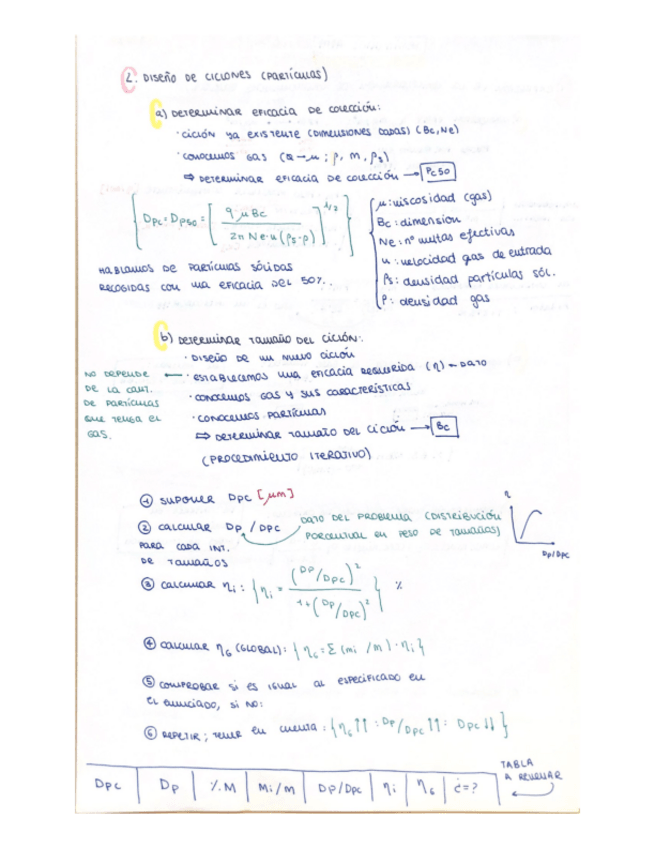 2. DISEÑO DE CICLONES (PARTÍCULAS)
a) DETERMINAR EFICACIA DE COLECCIÓN:
· CICLÓN YA EXISTENTE (DIMENSIONES DADAS) (Bc, Ne)
· CONOCEMOS GAS (Q → u ; ρ, m, ρs)
⇒ DETERMINAR EFICACIA DE COLECCIÓN → Pc50
{ Dpc = Dp50 = [ 9 μ Bc / 2π Ne · u (ρs - ρ) ]^1/2 }
μ: viscosidad (gas)
Bc: dimension
Ne: nº vueltas efectivas
u: velocidad gas de entrada
ρs: densidad partículas sól.
ρ: densidad gas
HABLAMOS DE PARTÍCULAS SÓLIDAS
RECOGIDAS CON UNA EFICACIA DEL 50%.
b) DETERMINAR TAMAÑO DEL CICLÓN:
· DISEÑO DE UN NUEVO CICLÓN
· ESTABLECEMOS UNA EFICACIA REQUERIDA (η) ← DATO
NO DEPENDE
DE LA CANT.
DE PARTÍCULAS
QUE TENGA EL
GAS.
· CONOCEMOS GAS Y SUS CARACTERÍSTICAS
· CONOCEMOS PARTÍCULAS
⇒ DETERMINAR TAMAÑO DEL CICLÓN → Bc
(PROCEDIMIENTO ITERATIVO)
① SUPONER Dpc [μm]
② CALCULAR Dp / Dpc
PARA CADA INT.
DE TAMAÑOS
DATO DEL PROBLEMA (DISTRIBUCIÓN
PORCENTUAL EN PESO DE TAMAÑOS)
η
Dp/Dpc
③ CALCULAR ηi : { ηi = (Dp/Dpc)² / 1+(Dp/Dpc)² } %
④ CALCULAR ηG (GLOBAL): { ηG = Σ (mi /m) · ηi }
⑤ COMPROBAR SI ES IGUAL AL ESPECIFICADO EN
EL ENUNCIADO, SI NO:
⑥ REPETIR ; TENER EN CUENTA : { ηG ↑↑ : Dp/Dpc ↑↑ : Dpc ↓↓ }
TABLA
A RELLENAR
Dpc | Dp | %M | Mi/m | Dp/Dpc | ηi | ηG | ¿=?